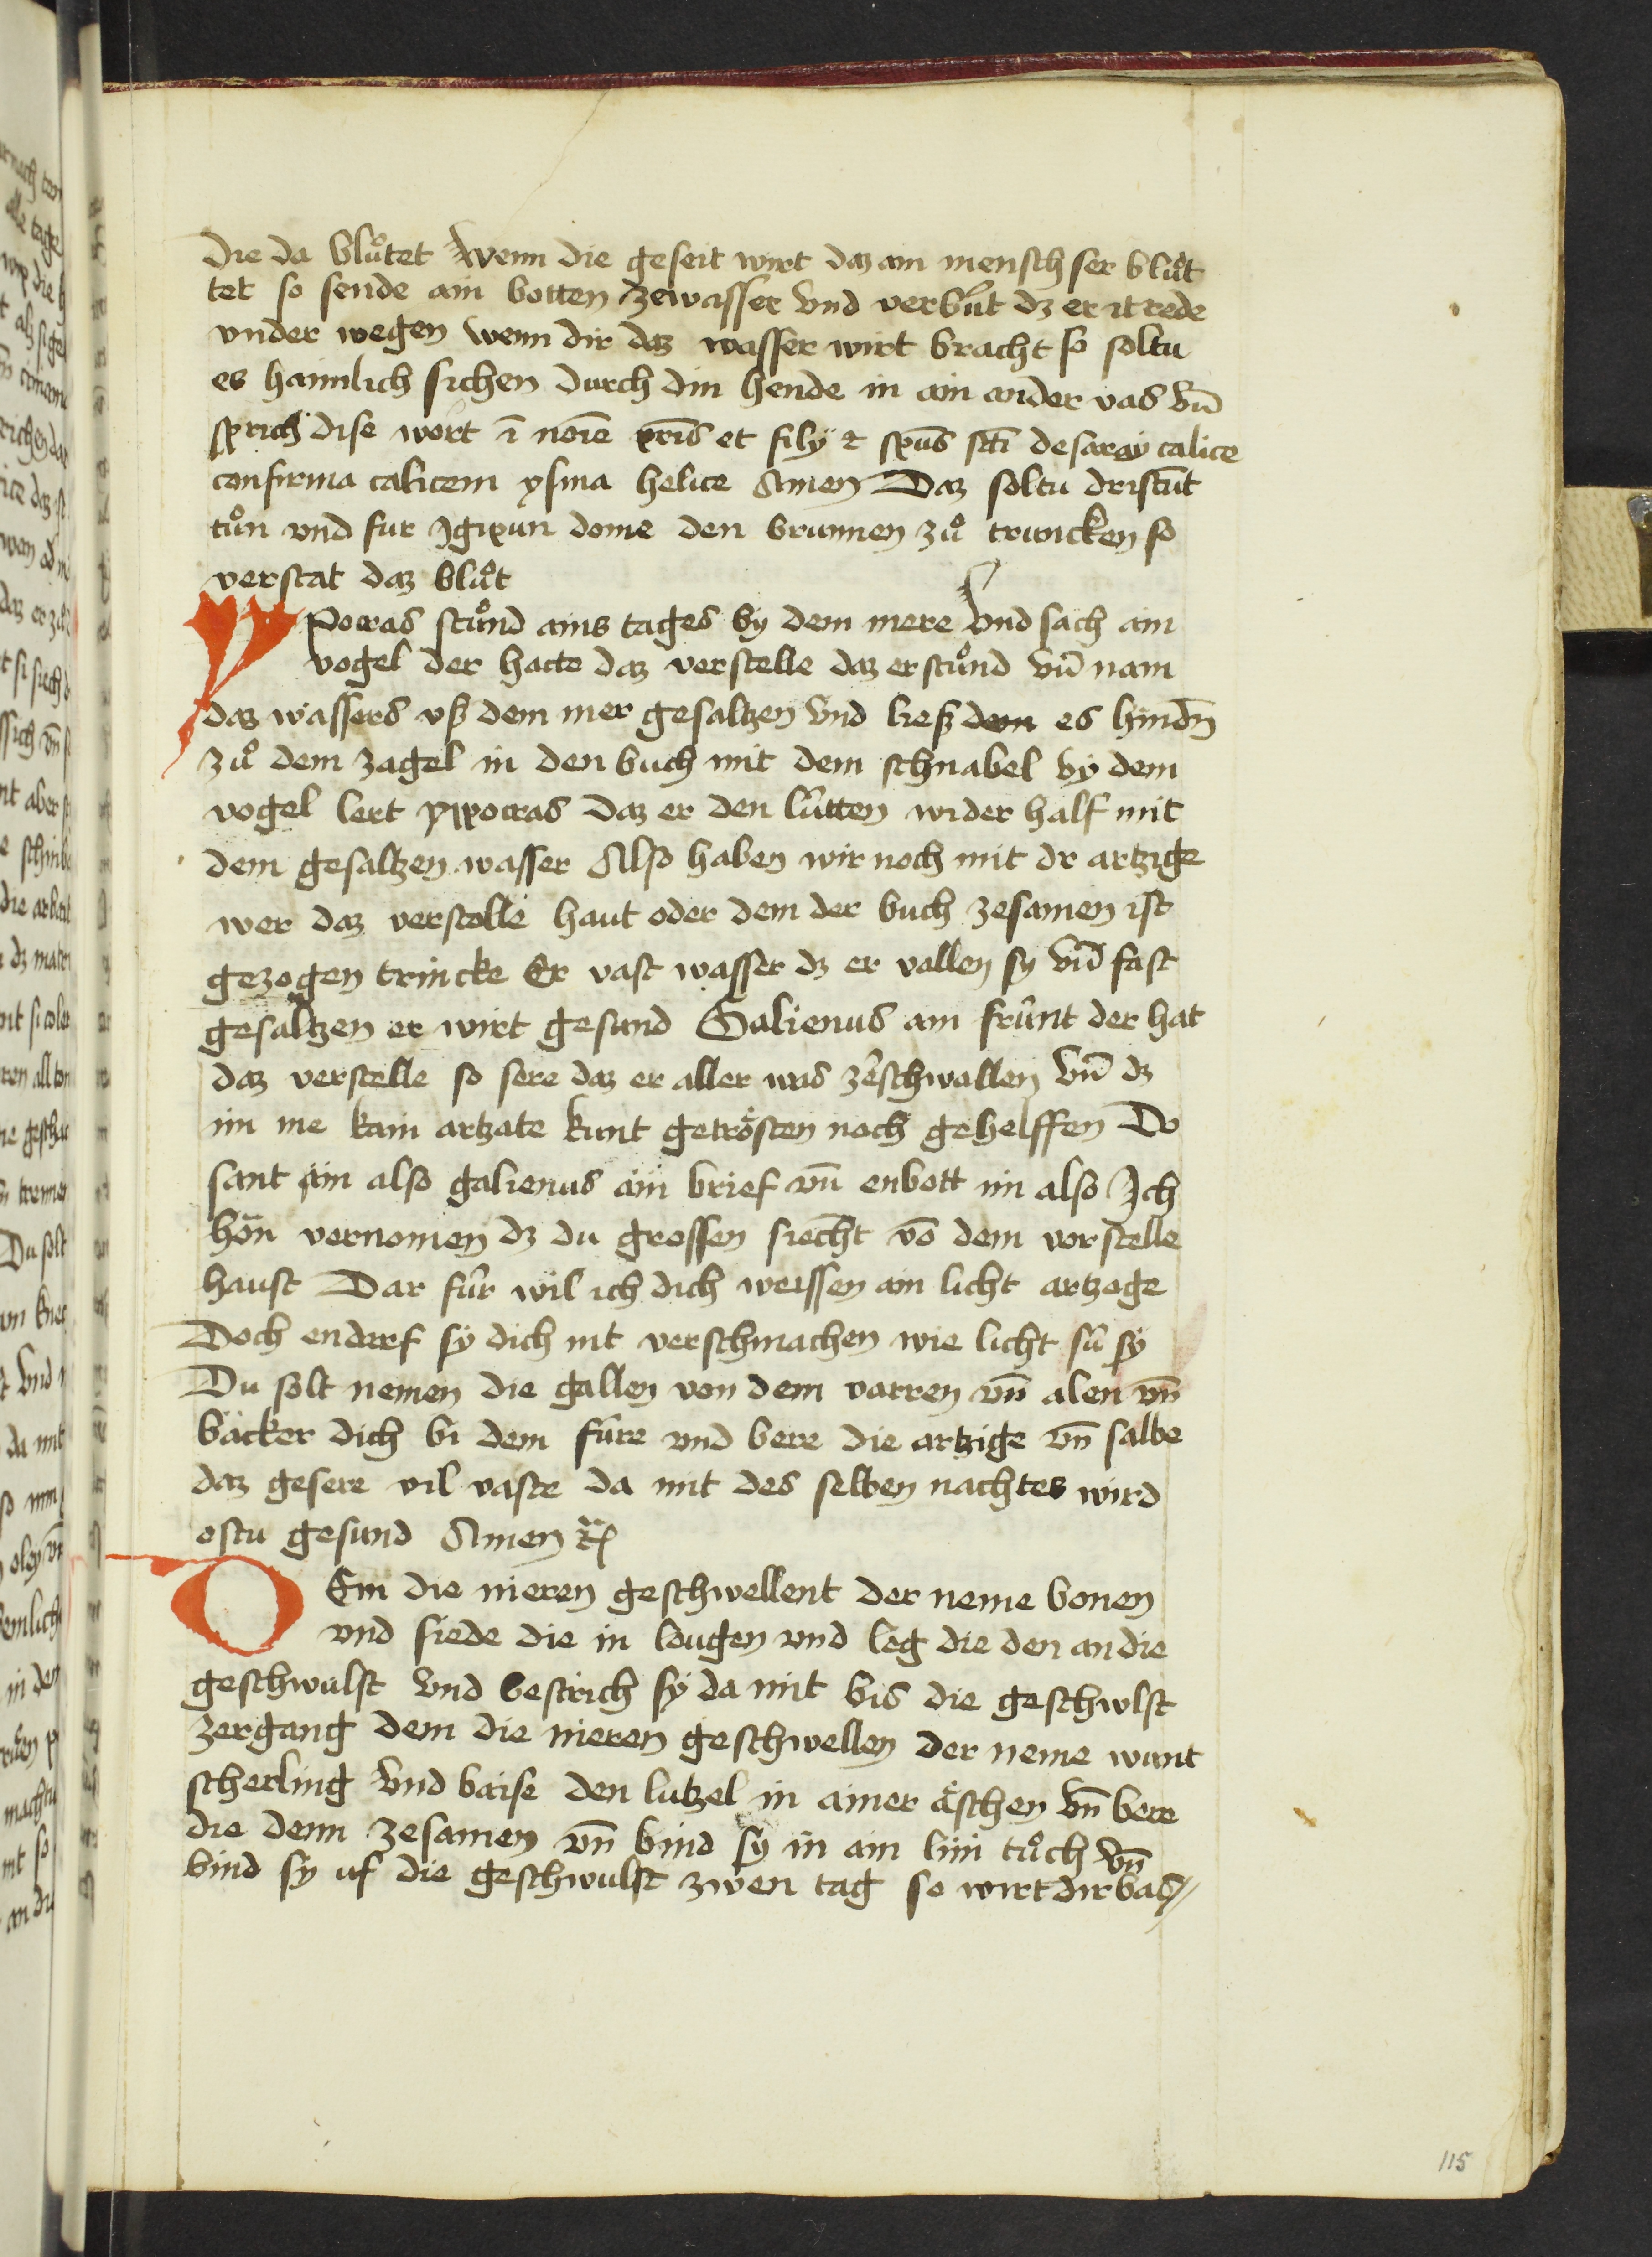 die da blůtet Wenn die geseit wirt daz ain mensch ser blůt
tet so sende ain botten zewasser Vnd verbút dz er it rede
vnder wegen Wenn dir daz wasser wirt bracht so soltu
es haimlich sichen durch din hende in ain ander vas Vn̄
sprich dise wort ī noīe pr̄is et filÿ ⁊ sp̄us sc̄i desaray calice
confirma calicem ysma helice Amen Daz soltu dristūt
tůn vnd fur dome den brunnen zů truncken so
verstat daz blůt
YPocras stůnd ains tages by dem mere Vnd sach ain
vogel der hatte daz verstelle daz er stůnd vn̄ nam
daz wassers vß dem mer gesaltzen Vnd ließ dem es hindn̄
zů dem zagel in den buch mit dem schnabel by dem
vogel lert ypocras daz er den lútten wider half mit
dem gesaltzen wasser Also haben wir noch mit dr artzige
wer daz verstelle haut oder dem der buch zesamen ist
gezogen trincke Er vast wasser dz er vallen sy vn̄ fast
gesaltzen er wirt gesund Galienus ain frúnt der hat
daz verstelle so sere daz er aller was zerschwallen Vn̄ dz
im nie kain artzate kunt getrösten noch gehelffen Do
sant ain also galienus ain brief vn̄ enbott im also Ich
hon vernomen dz du grossen siecht vō dem verstelle
haust Dar fúr wil ich dich weissen ain licht artzoge
Doch endarf sy dich nit verschmachen wie licht sú sy
Du solt nemen die gallen von dem varren vn̄ alen vn̄
bäcker dich bi dem fúre vnd bere die artzige vn̄ salbe
daz gesere vil vaste da mit des selben nachtes wird
estu gesund Amen
DEm die nieren geschwellent der neme bonen
vnd siede die in lougen vnd leg die den an die
geschwulst Vnd bestrich sy da mit bis die geschwlst
zergang dem die nieren geschwellen der neme wunt
scherling Vnd baise den lutzel in ainer äschen Vn̄ bere
die denn zesamen vn̄ bind sy in ain lini tůch vn̄
bind sy uf die geschwulst zwen tag so wirt dir bas
115